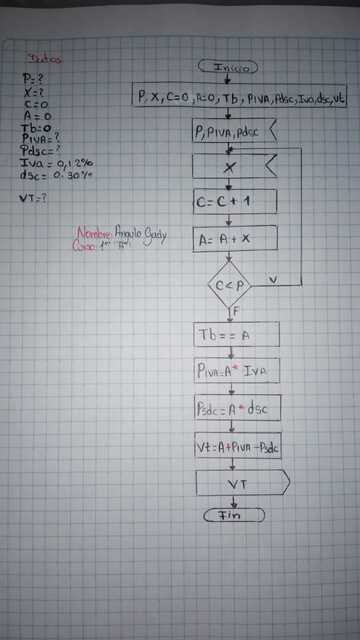 Datos
P=?
X=?
C=0
A=0
Tb=0
PIVA=?
Pdsc=?
Iva=0,12%
dsc=0.30%
VT=?
Nombre: Angulo Gady
Curso: 1ro "B"
Inicio
P, X, C=0, A=0, Tb, PIVA, Pdsc, Iva, dsc, Vt
P, PIVA, Pdsc
X
C=C+1
A=A+X
C<P
V
F
Tb==A
PIVA=A*IVA
Psdc=A*dsc
Vt=A+PIVA-Psdc
VT
Fin